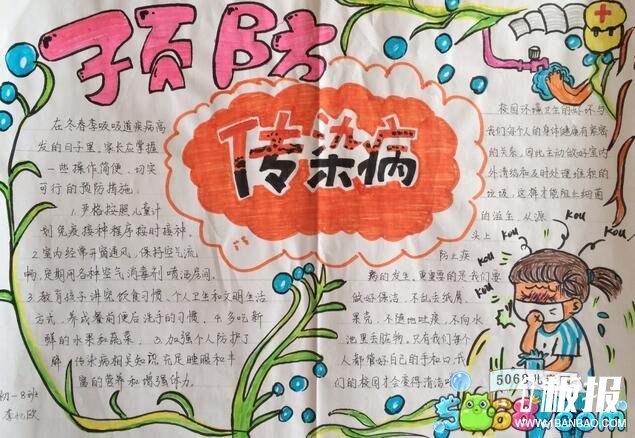 预防
传染病
在冬春季吸吸道疾病高
发的日子里，家长应掌握
一些操作简便、切实
可行的预防措施。
1.严格按照儿童计
划免疫接种程序按时接种。
2.室内经常开窗通风，保持空气流
畅，定期用各种空气消毒剂喷洒房间。
3.教育孩子讲究饮食习惯、个人卫生和文明生活
方式，养成餐前便后洗手的习惯。4.多吃新
鲜的水果和蔬菜。5.加强个人防护了
解传染病相关知识充足睡眠和丰
富的营养和增强体力。
初一8班
校园环境卫生的好坏与
我们每个人的身体健康有紧密
的关系，因此主动做好室内
外清洁和及时处理堆积的
垃圾，这样才能阻止细菌
的滋生，从源
头上
防止疾
病的发生。更重要的是我们要
做好保洁，不乱丢纸屑、
果壳，不随地吐痰，不向水
池里丢脏物。只有我们每个
人都管好自己的手和口，我
们的校园才会变得清洁
KOU
KOU
KOU
KOU
KOU
5068儿
板报
WWW.1BANBAO.COM